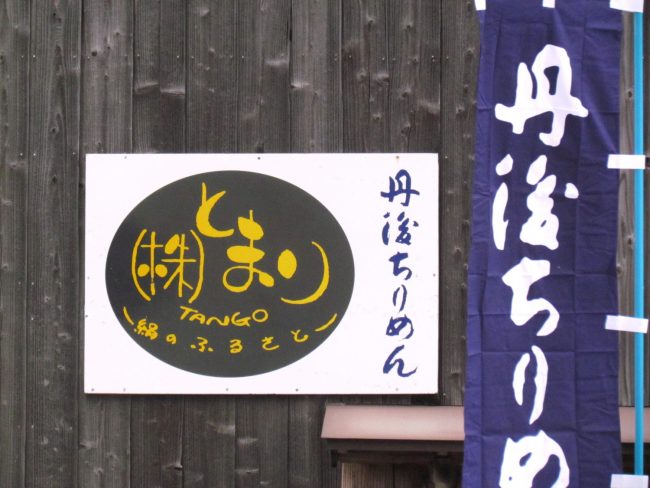 (株)とまり
TANGO
絹のふるさと
丹後ちりめん
丹後ちりめ